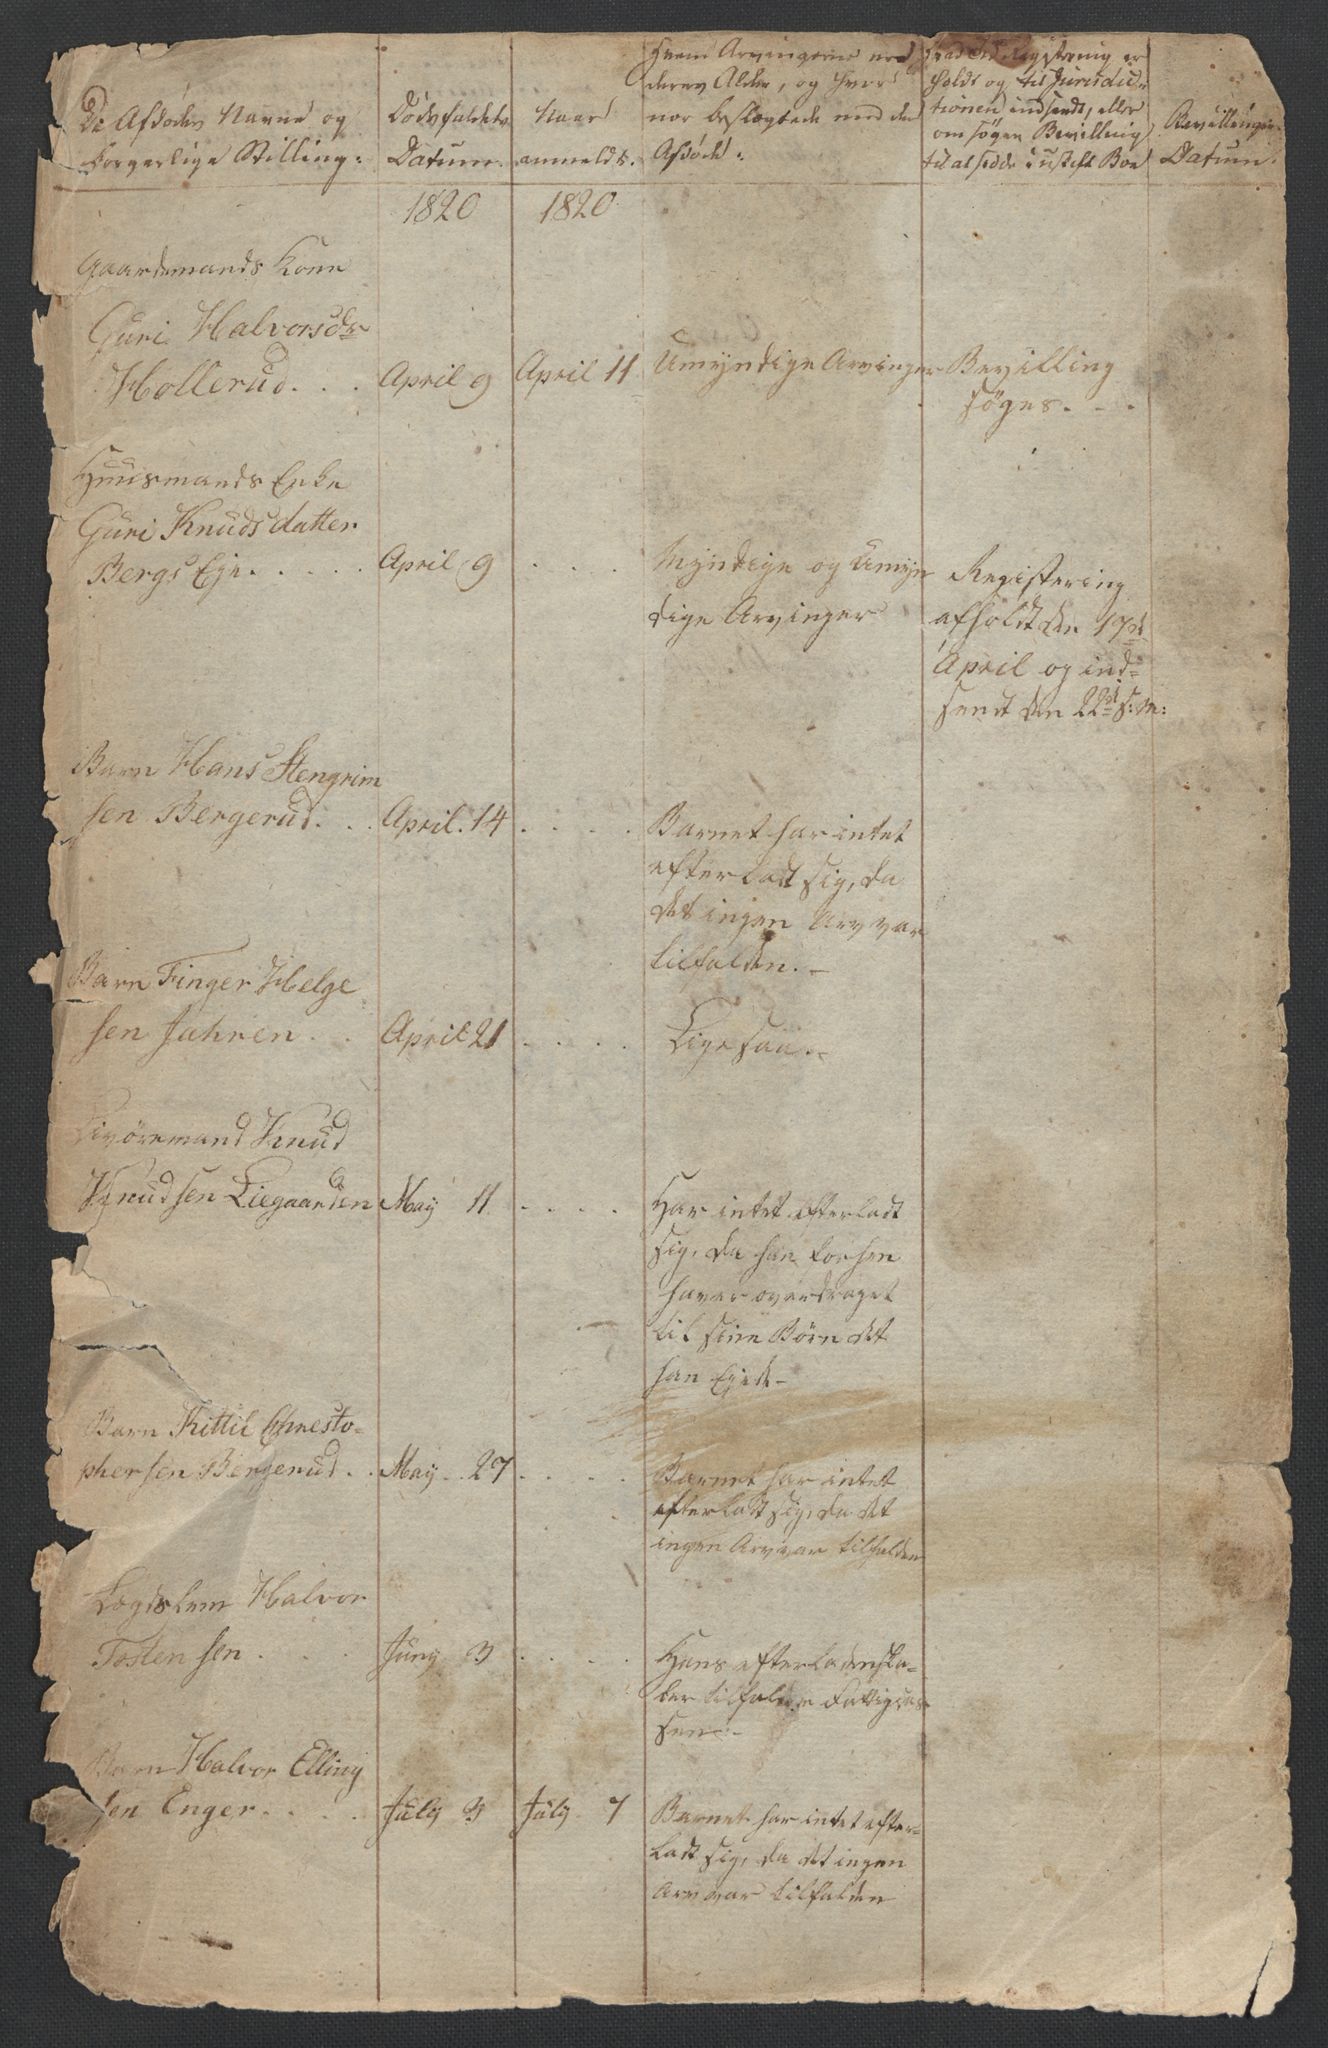 De Afdødes Navne og
borgerlige Stilling:
Dødsfaldets
Datum.
Naar
anmeldt.
Hvem Arvingerne med
deres Alder, og hvor
nær beslægtede med den
Afdøde:
Hvad Tid Registrering er
holdt og til Jurisdic-
tionen indsendt, eller
om søges Bevilling
til at sidde i uskift Boe
Bevillingens
Datum.
1820
1820
Gaardmands Kone
Guri Halvorsdr
Hollerud . . .
April 9
April 11
Umyndige Arvinger
Bevilling
søges . . .
Huusmands Enke
Guri Knudsdatter
Bergs Eje . . . . .
April 9
. . . .
Myndige og Umyn
dige Arvinger
Registering
afholdt den 17de
April og ind-
sendt den 22de s: m:
Barn Hans Stengrim
sen Bergerud . . .
April . 14
. . . .
Barnet har intet
efterladt sig, da
det ingen Arv var
tilfalden. -
Barn Finger Helge
sen Jahren . . .
April 21
. . . .
Ligesaa. -
Livøremand Knud
Knudsen Liegaarden
May 11
. . . .
Har intet efterladt
sig, da han forhen
haver overdraget
til sine Børn det
han Ejede -
Barn Kittil Christo-
phersen Bergerud . .
May . 27
. . . .
Barnet har intet
efterladt sig, da det
ingen Arv var tilfalden
Lægdslem Halvor
Tostensen . . . .
Juny 3
. . . .
Hans efterladenska-
ber tilfaldne Fattigcas
sen -
Barn Halvor Elling
sen Enger . . . .
July 3
July 7
Barnet har intet efter-
ladt sig, da det ingen
Arv var tilfalden